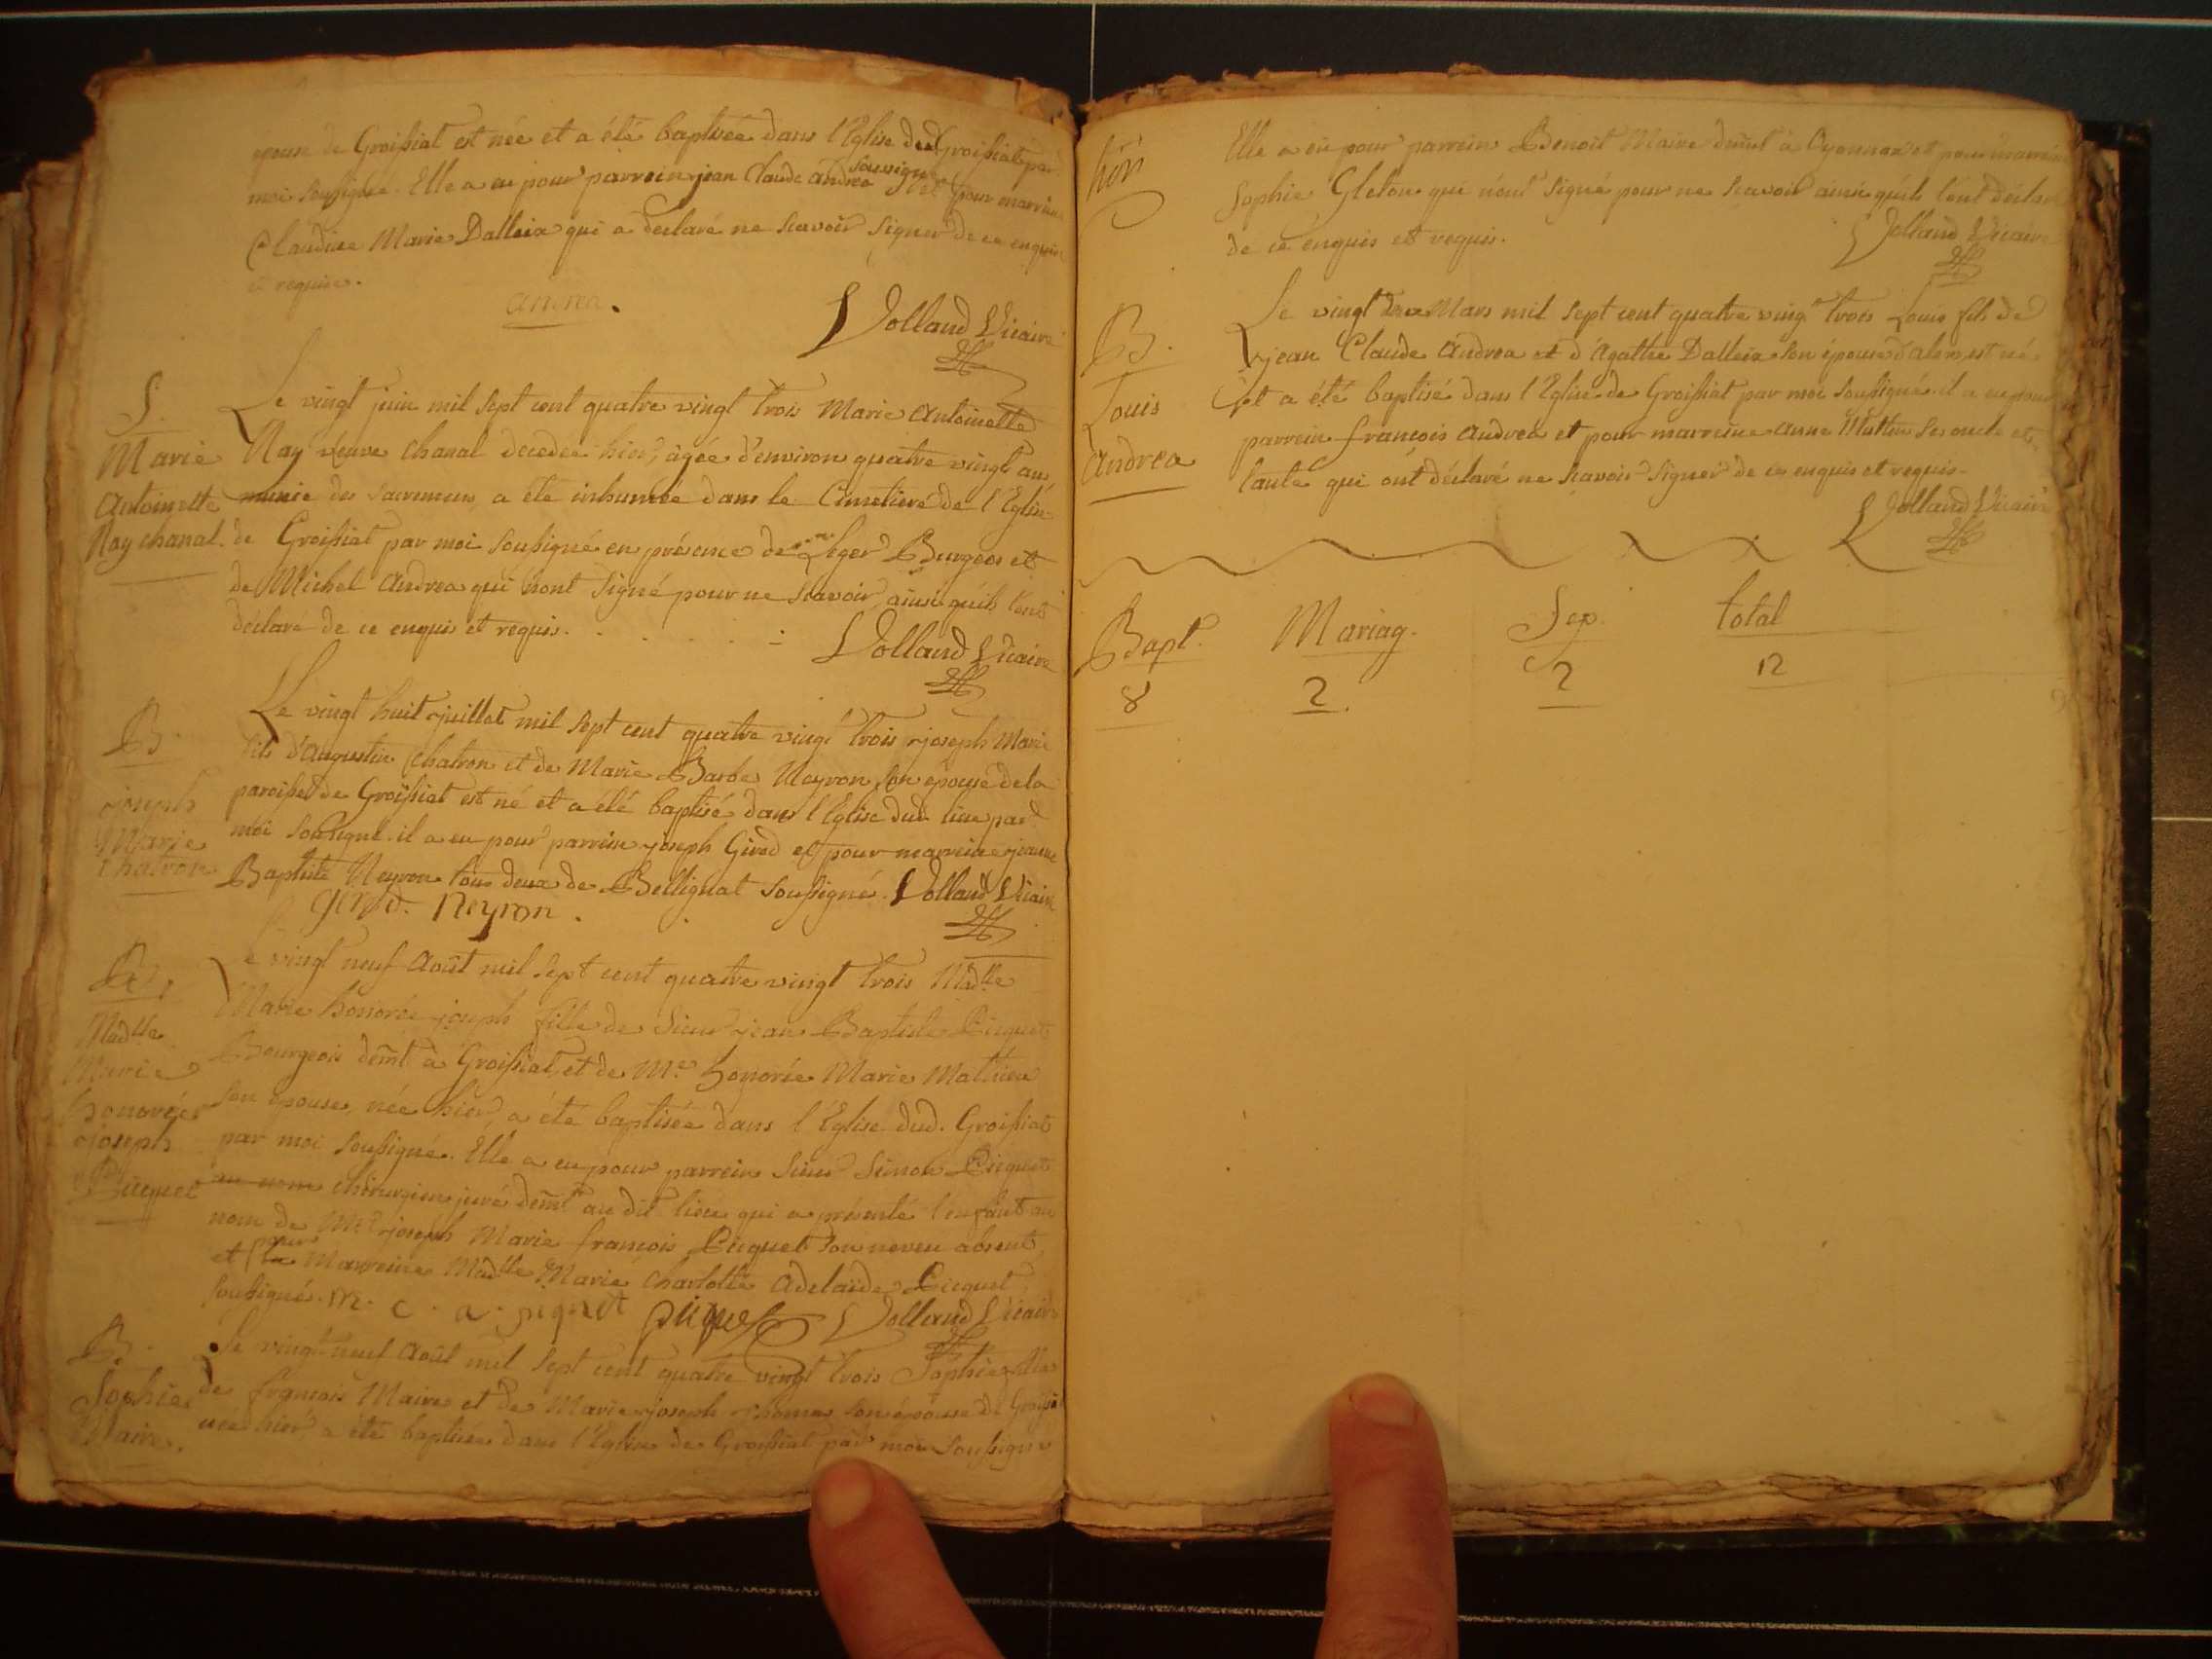 épouse de Groissiat est née et a été baptisée dans l'Eglise dud. Groissiat par
moi soussigné. Elle a eu pour parrein jean Claude andrea soussigné et pour marreine
Claudine Marie Dalleia qui a déclaré ne scavoir signer de ce enquise
et requise.
andrea.
Volland Vicaire
S.
Marie
Antoinette
Ray chanal.
Le vingt juin mil sept cent quatre vingt trois Marie Antoinette
Ray veuve Chanal decedée hier, agée d'environ quatre vingt ans
munie des sacremens, a été inhumée dans le Cimetiere de l'Eglise
de Groissiat par moi soussigné en présence de Leger Burgeos et
de Michel Andrea qui n'ont signé pour ne scavoir, ainsi qu'ils l'ont
déclaré de ce enquis et requis.
Volland Vicaire
B.
joseph
Marie
Chatron
Le vingt huit juillet mil sept cent quatre vingt trois joseph Marie
fils d'Augustin Chatron et de Marie Barbe Neyron son épouse de la
paroisse de Groissiat est né et a été baptisé dans l'Eglise dud. lieu par
moi soussigné. il a eu pour parrein joseph Girod et pour marreine jeanne
Baptiste Neyron tous deux de Bellignat soussignés. Volland Vicaire
Girod. Neyron.
B.
Madlle
Marie
honorée
joseph
Picquet
Le vingt neuf Août mil sept cent quatre vingt trois Madlle
Marie honorée joseph fille de Sieur jean Baptiste Picquet
Bourgeois demt à Groissiat, et de Me honorée Marie Mathieu
son épouse, née hier, a été baptisée dans l'Eglise dud. Groissiat
par moi soussigné. Elle a eu pour parrein Sieur Simon Picquet
au nom chirurgien juré demt au dit lieu qui a présenté l'enfant au
nom de Mr joseph Marie françois Picquet son neveu absent,
et pour la Marreine Madlle Marie Charlotte Adelaïde Picquet
soussignés. m. c. a. piquet piquet Volland Vicaire
B.
Sophie
Maire.
Le vingt-neuf Août mil sept cent quatre vingt trois Sophie fille
de françois Maire et de Marie joseph thomas son épouse de Groissiat
née hier, a été baptisée dans l'Eglise de Groissiat par moi soussigné
Elle a eu pour parrein Benoit Maire demt à Oyonnax et pour marreine
Sophie Gleton qui n'ont signé pour ne scavoir ainsi qu'ils l'ont déclaré
de ce enquis et requis.
Volland Vicaire
B.
Louis
andrea
Le vingt deux Mars mil sept cent quatre vingt trois Louis fils de
jean Claude Andrea et d'Agathe Dalleia son épouse d'alex est né
et a été baptisé dans l'Eglise de Groissiat par moi soussigné. il a eu pour
parrein françois Andrea et pour marreine anne ses oncle et
tante qui ont déclaré ne scavoir signer de ce enquis et requis.
Volland Vicaire
Bapt. Mariag. Sep. total
8 2. 2 12